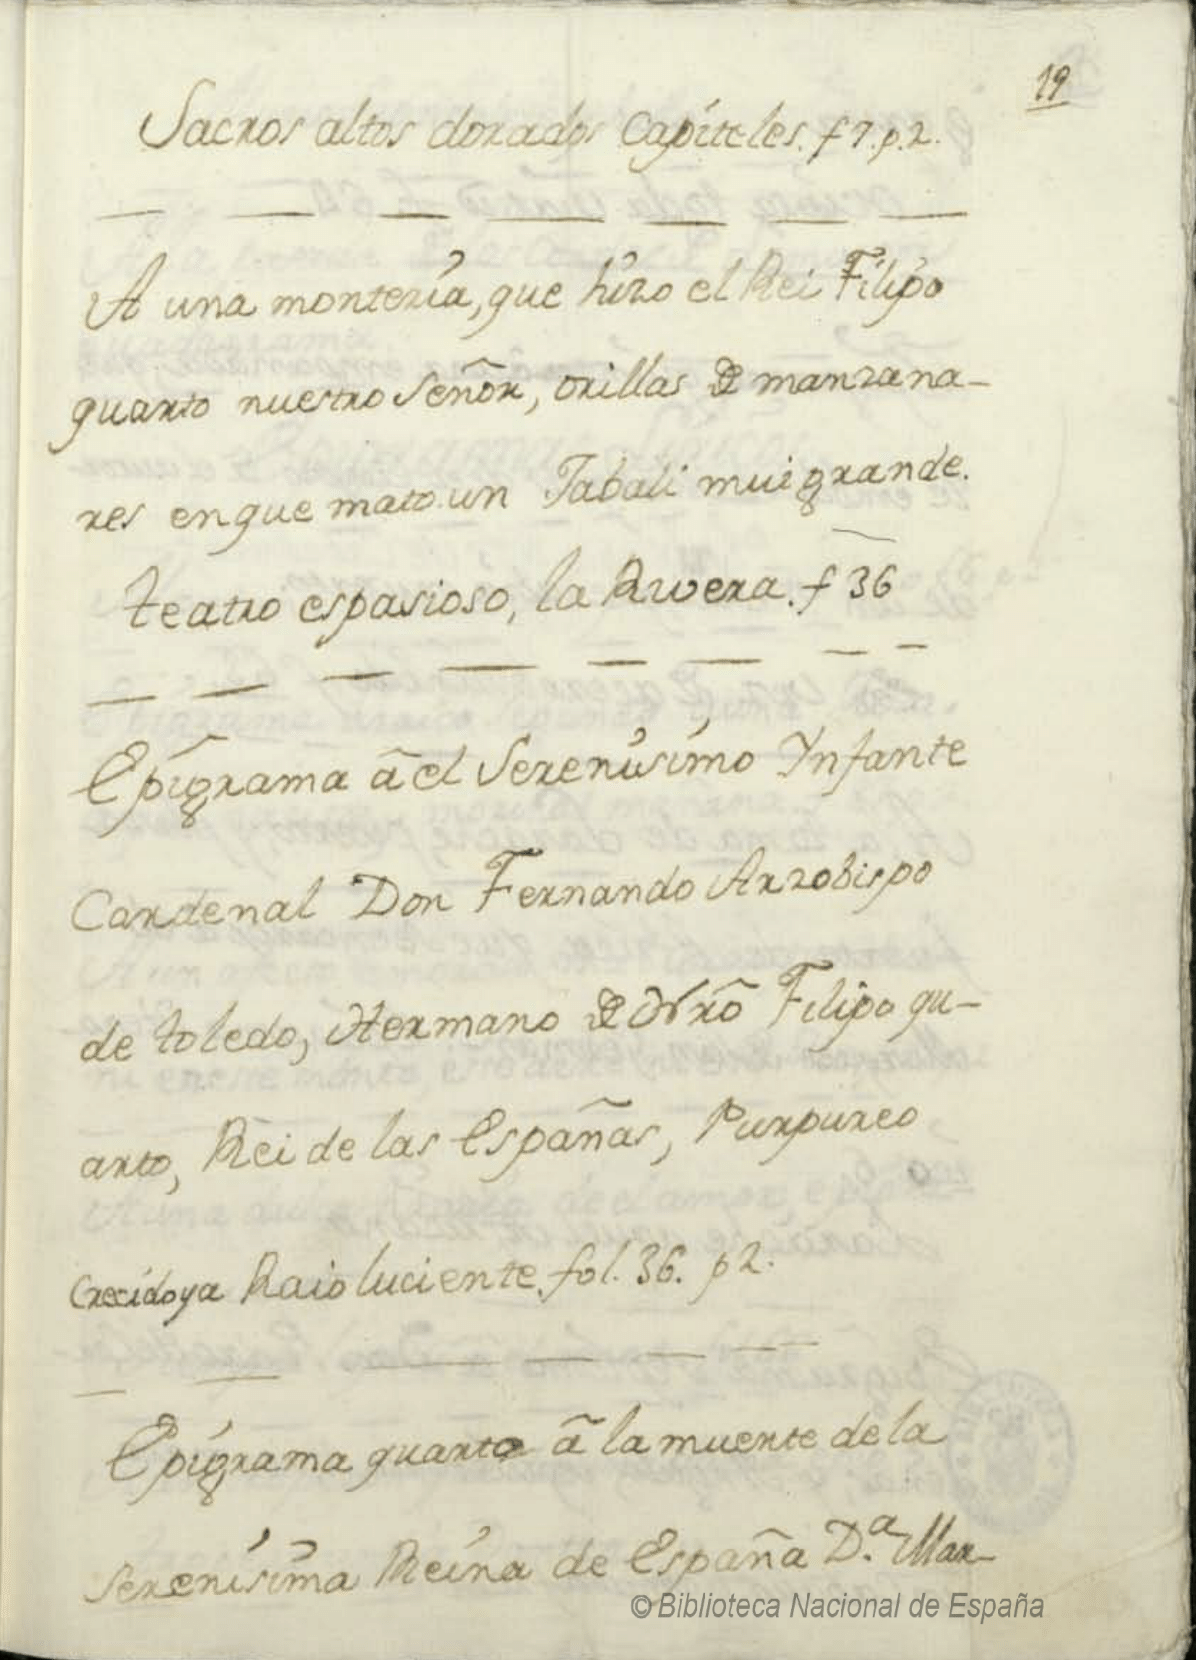 19
Sacros altos dorados Capiteles. f 7. p. 2.
A una monteria, que hizo el Rei Filipo
quarto nuestro Señor, orillas de manzana-
res en que mato un Jabali mui grande.
teatro espasioso, la Rivera. f 36
Epigrama â el Serenisimo Ynfante
Cardenal Don Fernando Arzobispo
de toledo, Hermano de Nrõ Filipo qu-
arto, Rei de las Españas, Purpureo
Crecido ya Raio luciente. fol. 36. p 2.
Epigrama quarto â la muerte de la
Serenisima Reina de España D.ª Mar-
© Biblioteca Nacional de España